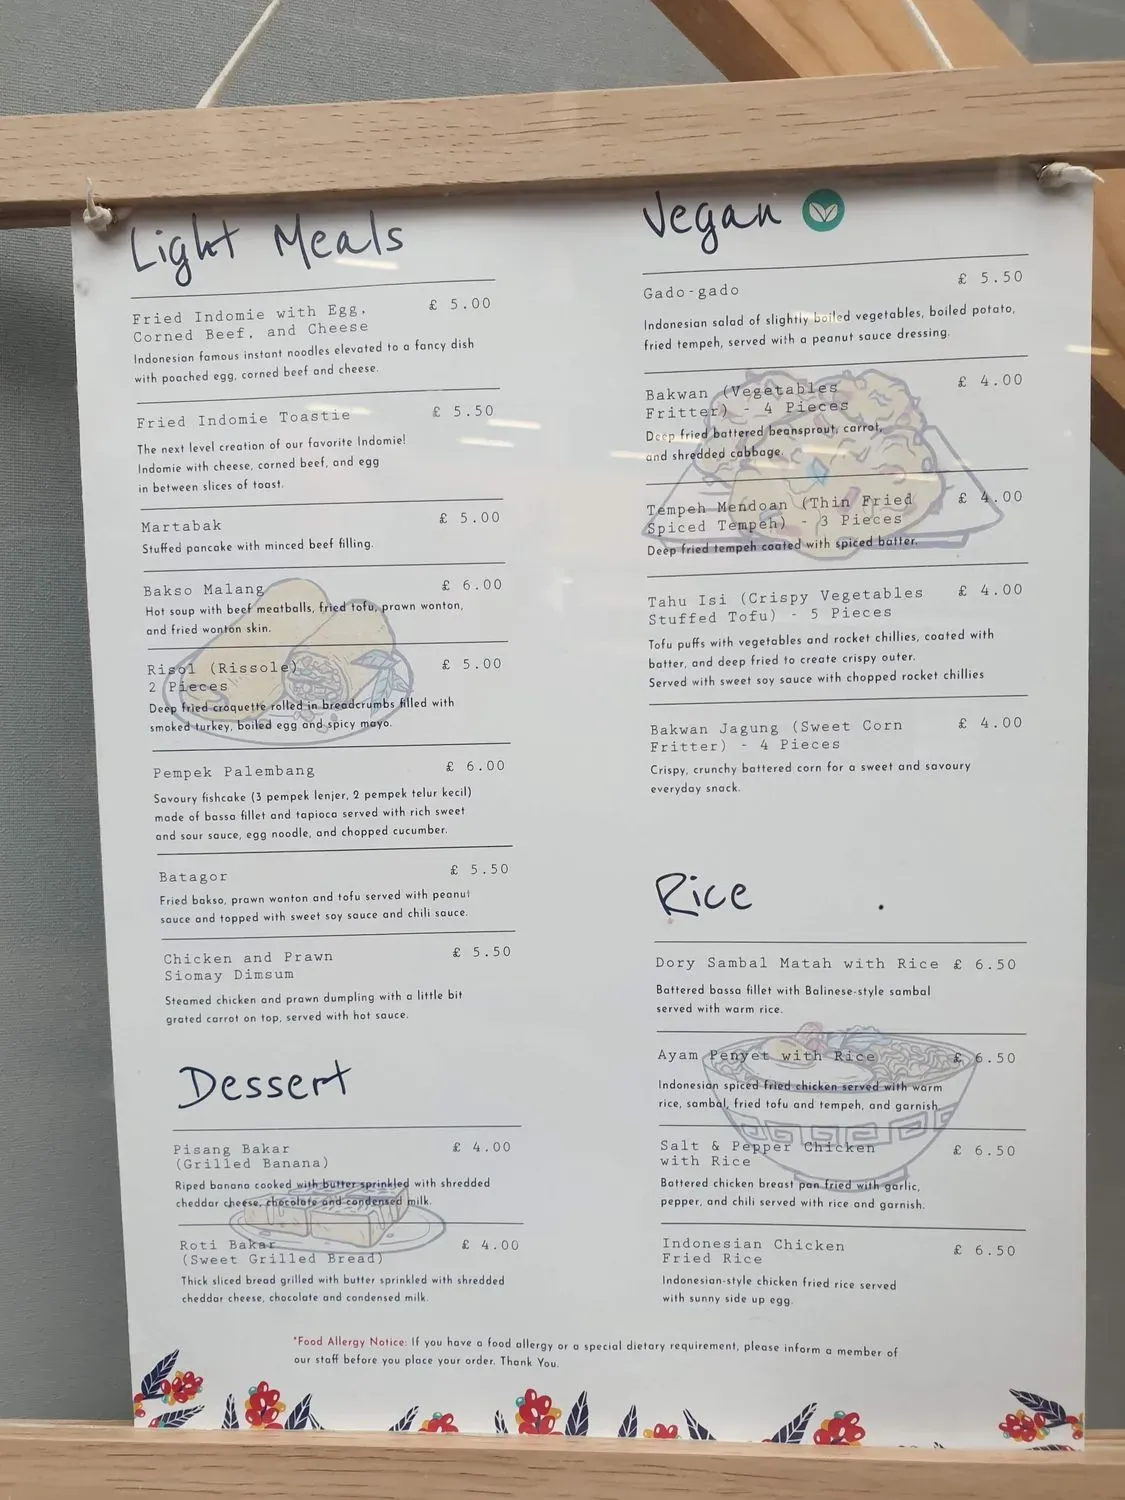 Light Meals
Fried Indomie with Egg, £ 5.00
Corned Beef, and Cheese
Indonesian famous instant noodles elevated to a fancy dish
with poached egg, corned beef and cheese.
Fried Indomie Toastie £ 5.50
The next level creation of our favorite Indomie!
Indomie with cheese, corned beef, and egg
in between slices of toast.
Martabak £ 5.00
Stuffed pancake with minced beef filling.
Bakso Malang £ 6.00
Hot soup with beef meatballs, fried tofu, prawn wonton,
and fried wonton skin.
Risol (Rissole) £ 5.00
2 Pieces
Deep fried croquette rolled in breadcrumbs filled with
smoked turkey, boiled egg and spicy mayo.
Pempek Palembang £ 6.00
Savoury fishcake (3 pempek lenjer, 2 pempek telur kecil)
made of bassa fillet and tapioca served with rich sweet
and sour sauce, egg noodle, and chopped cucumber.
Batagor £ 5.50
Fried bakso, prawn wonton and tofu served with peanut
sauce and topped with sweet soy sauce and chili sauce.
Chicken and Prawn £ 5.50
Siomay Dimsum
Steamed chicken and prawn dumpling with a little bit
grated carrot on top, served with hot sauce.
Dessert
Pisang Bakar £ 4.00
(Grilled Banana)
Riped banana cooked with butter sprinkled with shredded
cheddar cheese, chocolate and condensed milk.
Roti Bakar £ 4.00
(Sweet Grilled Bread)
Thick sliced bread grilled with butter sprinkled with shredded
cheddar cheese, chocolate and condensed milk.
Vegan
Gado-gado £ 5.50
Indonesian salad of slightly boiled vegetables, boiled potato,
fried tempeh, served with a peanut sauce dressing.
Bakwan (Vegetables £ 4.00
Fritter) - 4 Pieces
Deep fried battered beansprout, carrot,
and shredded cabbage.
Tempeh Mendoan (Thin Fried £ 4.00
Spiced Tempeh) - 3 Pieces
Deep fried tempeh coated with spiced batter.
Tahu Isi (Crispy Vegetables £ 4.00
Stuffed Tofu) - 5 Pieces
Tofu puffs with vegetables and rocket chillies, coated with
batter, and deep fried to create crispy outer.
Served with sweet soy sauce with chopped rocket chillies
Bakwan Jagung (Sweet Corn £ 4.00
Fritter) - 4 Pieces
Crispy, crunchy battered corn for a sweet and savoury
everyday snack.
Rice
Dory Sambal Matah with Rice £ 6.50
Battered bassa fillet with Balinese-style sambal
served with warm rice.
Ayam Penyet with Rice £ 6.50
Indonesian spiced fried chicken served with warm
rice, sambal, fried tofu and tempeh, and garnish.
Salt & Pepper Chicken £ 6.50
with Rice
Battered chicken breast pan fried with garlic,
pepper, and chili served with rice and garnish.
Indonesian Chicken £ 6.50
Fried Rice
Indonesian-style chicken fried rice served
with sunny side up egg.
*Food Allergy Notice: If you have a food allergy or a special dietary requirement, please inform a member of
our staff before you place your order. Thank You.